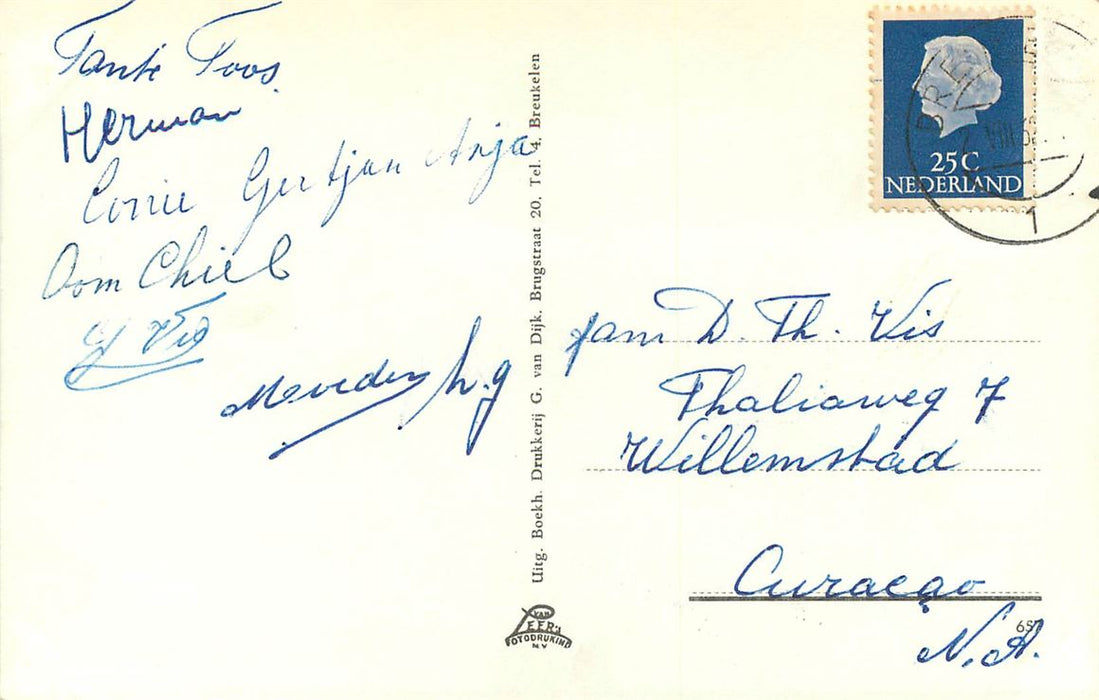 Tante Toos.
Herman
Corrie Gertjan Anja
Oom Chiel
Vis
h.g
Uitg. Boekh. Drukkerij G. van Dijk. Brugstraat 20. Tel. 4. Breukelen
VAN
LEER's
FOTODRUKIND
N V
25C
NEDERLAND
BRE
VIII
1
fam D. Th. Vis
Thaliaweg 7
Willemstad
Curaçao
657
N.A.